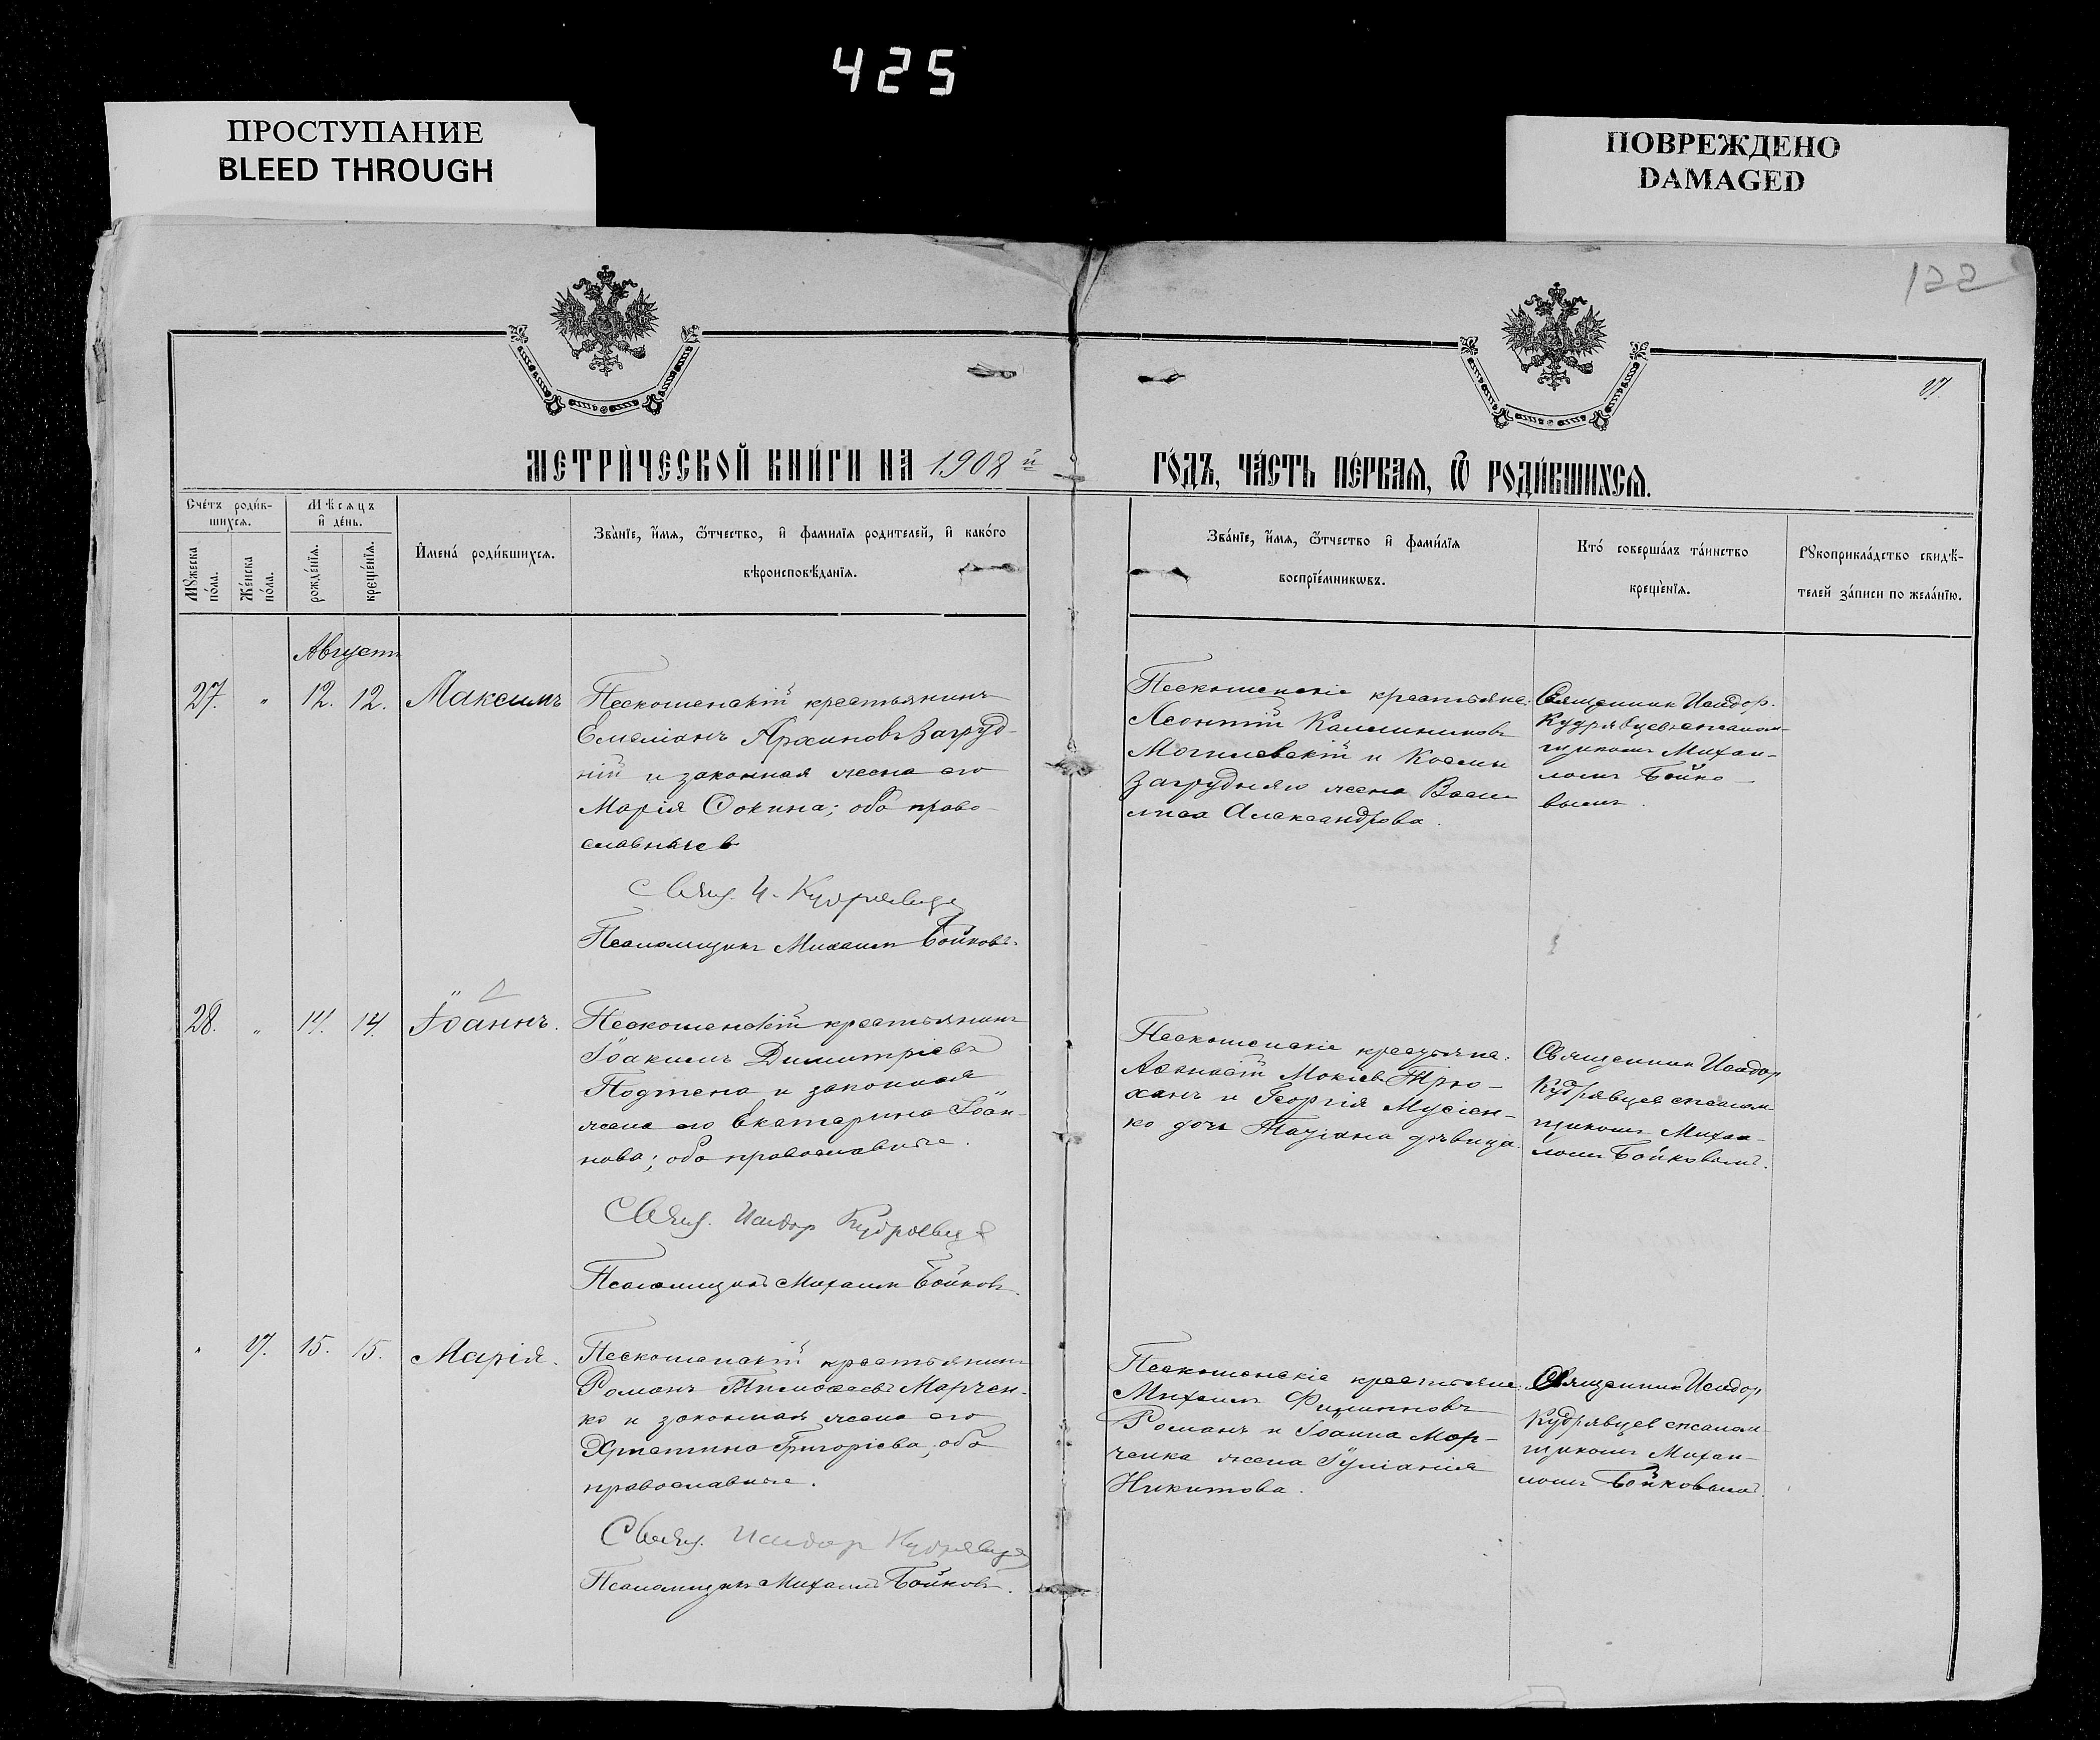 425
ПРОСТУПАНИЕ
BLEED THROUGH
ПОВРЕЖДЕНО
DAMAGED
122
МЕТРИ́ЧЕСКОЙ КНИ́ГИ НА 1908й
ГО́ДЪ, ЧА́СТЬ ПЕ́РВАЯ, Ѿ РОДИ́ВШИХСЯ.
Сче́тъ роди́в-
шихся.
Мѣсяцъ
и де́нь.
Мꙋжеска
по́ла.
Же́нска
по́ла.
рожде́нїя.
креще́нїя.
Имена́ роди́вшихся.
Зва́нїе, и́мя, ѻ́тчество, и фами́лїя роди́телей, и како́го
вѣроисповѣ́данїя.
Зва́нїе, и́мя, ѻ́тчество и фами́лїя
воспрїе́мникωвъ.
Кто́ соверша́лъ та́инство
креще́нїя.
Рꙋкоприкла́дство свидѣ́-
телей за́писи по жела́нїю.
Августъ
27. " 12. 12. Максимъ
Пескошенскій крестьянинъ
Емеліанъ Архиповъ Загруд-
ній и законная жена его
Марія Фокина; оба право-
славные
Свящ. И. Кудрявцев
Псаломщикъ Михаилъ Бойковъ.
Пескошенскіе крестьяне:
Леонтій Каллиниковъ
Могилевскій и Космы
Загрудняго жена Васи
лиса Александрова.
Священник Исидор.
Кудрявцев с псалом-
щикомъ Михаи-
ломъ Бойко-
вымъ.
28. " 14. 14. Іоаннъ.
Пескошенскій крестьянинъ
Іоакимъ Димитріевъ
Подтепа и законная
жена его Екатерина Іоан-
нова; оба православные.
Свящ. Исидор Кудрявцев
Псаломщикъ Михаилъ Бойковъ.
Пескошенскіе крестьяне:
Мокіев Трю-
ханъ и Георгія Мусіен-
ко дочь Татіана дѣвица.
Священник Исидор
Кудрявцев с псалом-
щикомъ Михаи-
ломъ Бойковымъ.
" 27. 15. 15. Марія.
Пескошенскій крестьянинъ
Романъ Тимофеевъ Марчен-
ко и законная жена его
Христина Григоріева; оба
православные.
Свящ. Исидор Кудрявцев
Псаломщикъ Михаилъ Бойковъ.
Пескошенскіе крестьяне:
Михаилъ Филипповъ
Романъ и Іоанна Мар-
ченка жена Іуліанія
Никитова.
Священник Исидор
Кудрявцев с псалом-
щикомъ Михаи-
ломъ Бойковымъ.